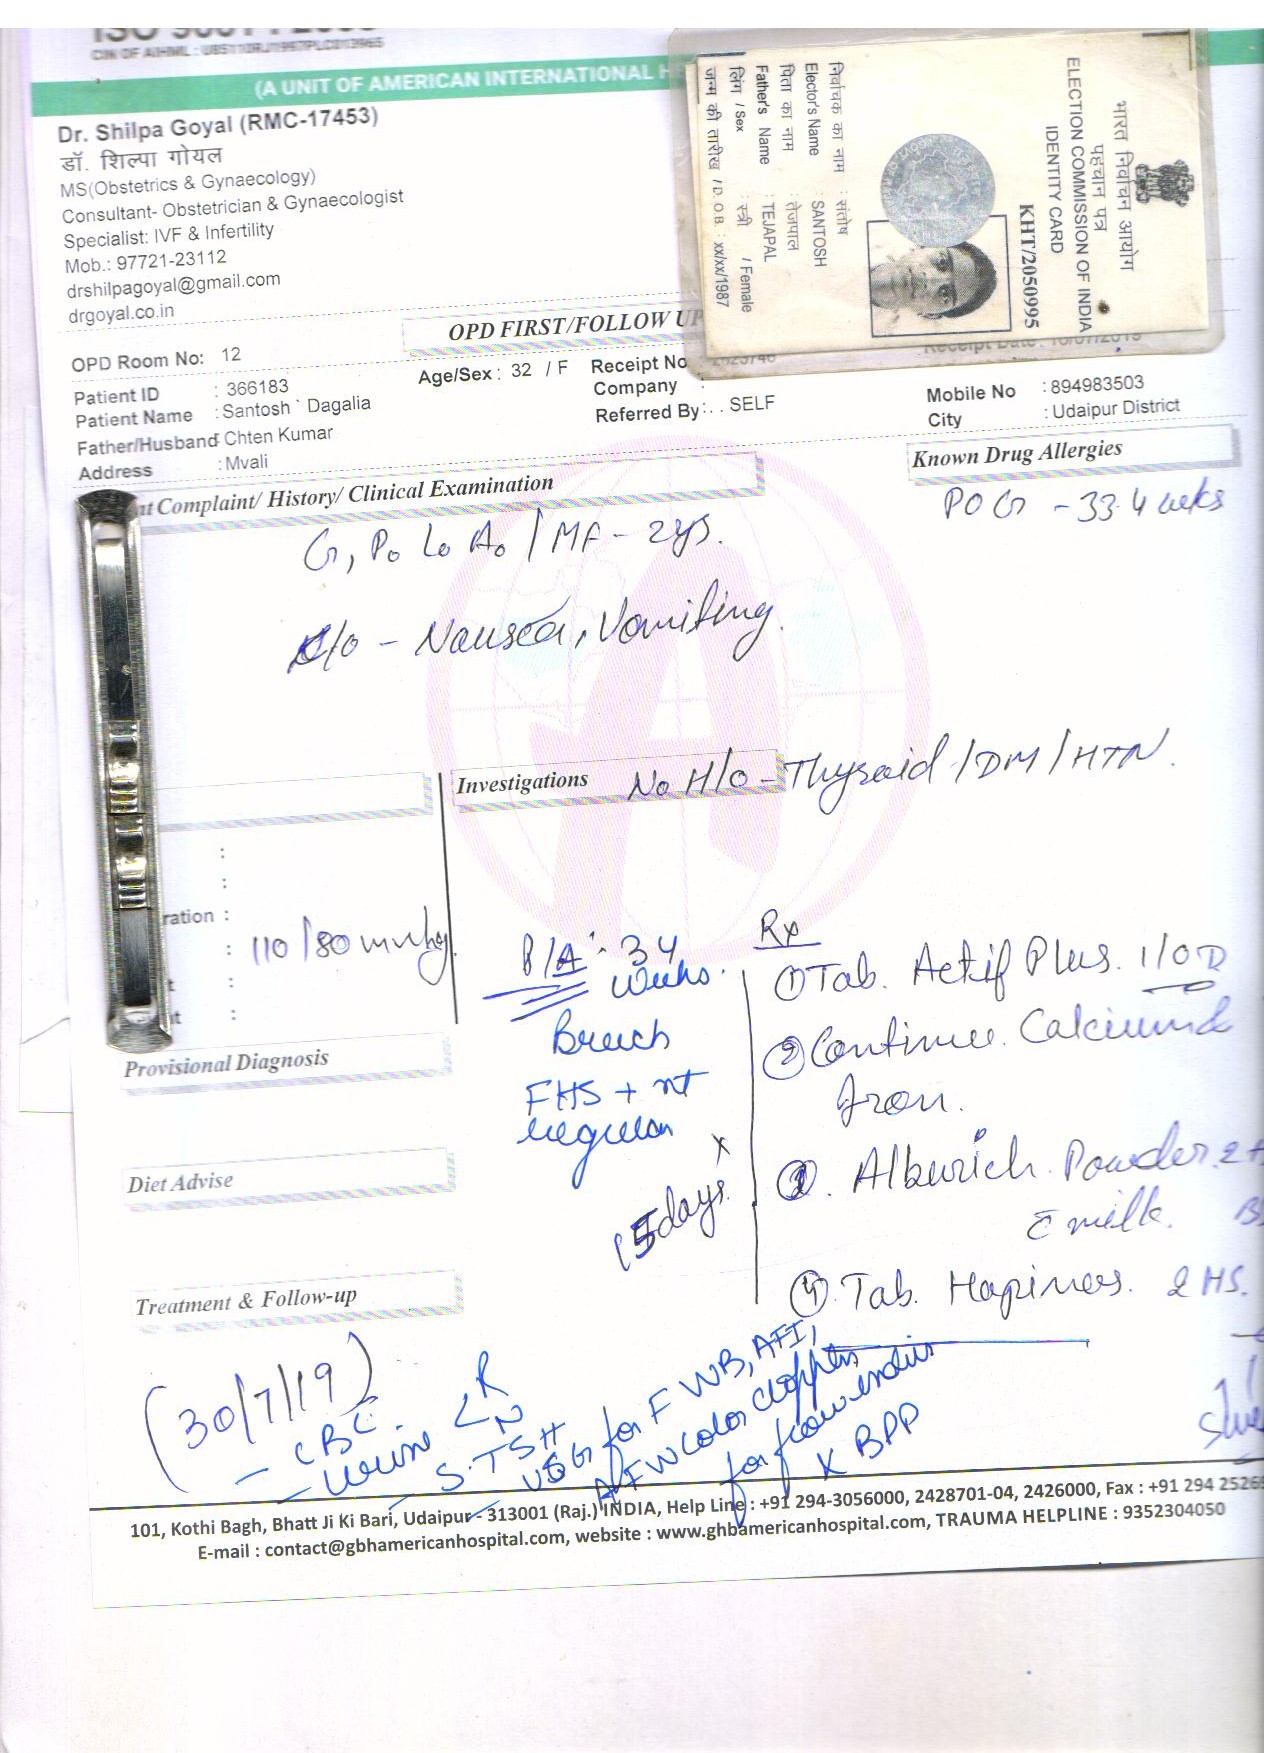 CIN OF AIHML : U85110RJ1997PLC013965
(A UNIT OF AMERICAN INTERNATIONAL H
Dr. Shilpa Goyal (RMC-17453)
डॉ. शिल्पा गोयल
MS(Obstetrics & Gynaecology)
Consultant- Obstetrician & Gynaecologist
Specialist: IVF & Infertility
Mob.: 97721-23112
drshilpagoyal@gmail.com
drgoyal.co.in
भारत निर्वाचन आयोग
पहचान पत्र
ELECTION COMMISSION OF INDIA
IDENTITY CARD
KHT/2050995
निर्वाचक का नाम : संतोष
Elector's Name : SANTOSH
पिता का नाम : तेजपाल
Father's Name : TEJAPAL
लिंग / Sex : स्त्री / Female
जन्म की तारीख / D.O.B. : xx/xx/1987
OPD FIRST/FOLLOW UP
OPD Room No: 12
Age/Sex : 32 / F
Receipt No
Patient ID : 366183
Company :
Patient Name : Santosh ` Dagalia
Referred By : . . SELF
Mobile No : 894983503
City : Udaipur District
Father/Husband : Chten Kumar
Address : Mvali
nt Complaint/ History/ Clinical Examination
Known Drug Allergies
POG - 33.4 weks
G1 P0 L0 A0 / MF - 2ys.
C/o - Nausea, Vomiting.
Investigations
No H/o - Thyroid / DM / HTN.
ration :
: 110/80 mmhg
P/A : 34
weeks.
Breech
FHS + nt
regular
Rx
① Tab. Actif Plus. 1/OD
② Continue. Calcium &
Iron.
③. Alburich Powder. 2
c milk.
④. Tab. Hapiness. 2 HS.
x
15 days.
Provisional Diagnosis
Diet Advise
Treatment & Follow-up
(30/7/19)
- CBC
- Urine < R
N
- S. TSH
- USG for FWB, AFI,
AFW color dopplers
for flow indices
x BPP
101, Kothi Bagh, Bhatt Ji Ki Bari, Udaipur - 313001 (Raj.) INDIA, Help Line : +91 294-3056000, 2428701-04, 2426000, Fax : +91 294 25269
E-mail : contact@gbhamericanhospital.com, website : www.ghbamericanhospital.com, TRAUMA HELPLINE : 9352304050